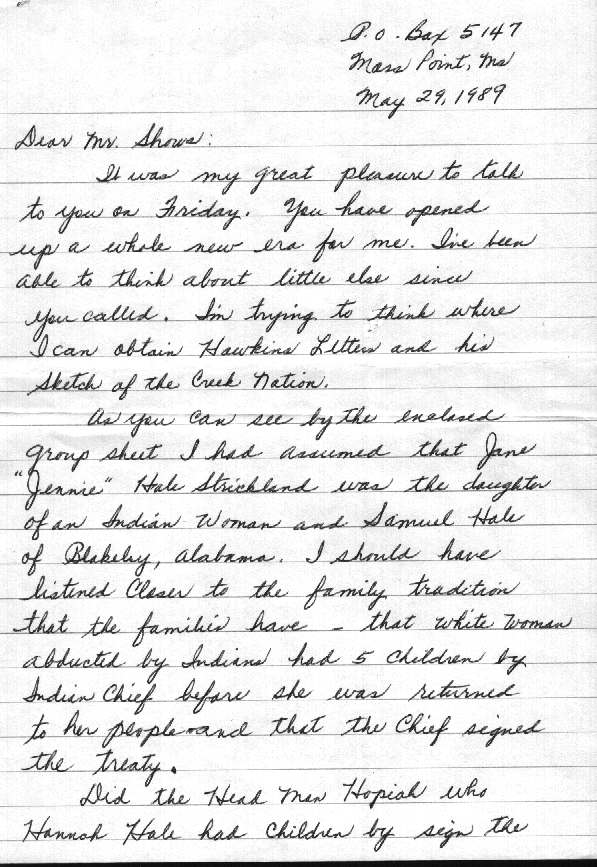 P.O. Box 5147
Moss Point, Ms
May 29, 1989
Dear Mr. Shows:
It was my great pleasure to talk
to you on Friday. You have opened
up a whole new era for me. I've been
able to think about little else since
you called. I'm trying to think where
I can obtain Hawkins Letters and his
Sketch of the Creek Nation.
As you can see by the enclosed
group sheet I had assumed that Jane
"Jennie" Hale Strickland was the daughter
of an Indian Woman and Samuel Hale
of Blakeley, Alabama. I should have
listened closer to the family tradition
that the families have - that white woman
abducted by Indians had 5 children by
Indian Chief before she was returned
to her people and that the Chief signed
the treaty.
Did the Head Man Hopiah who
Hannah Hale had children by sign the